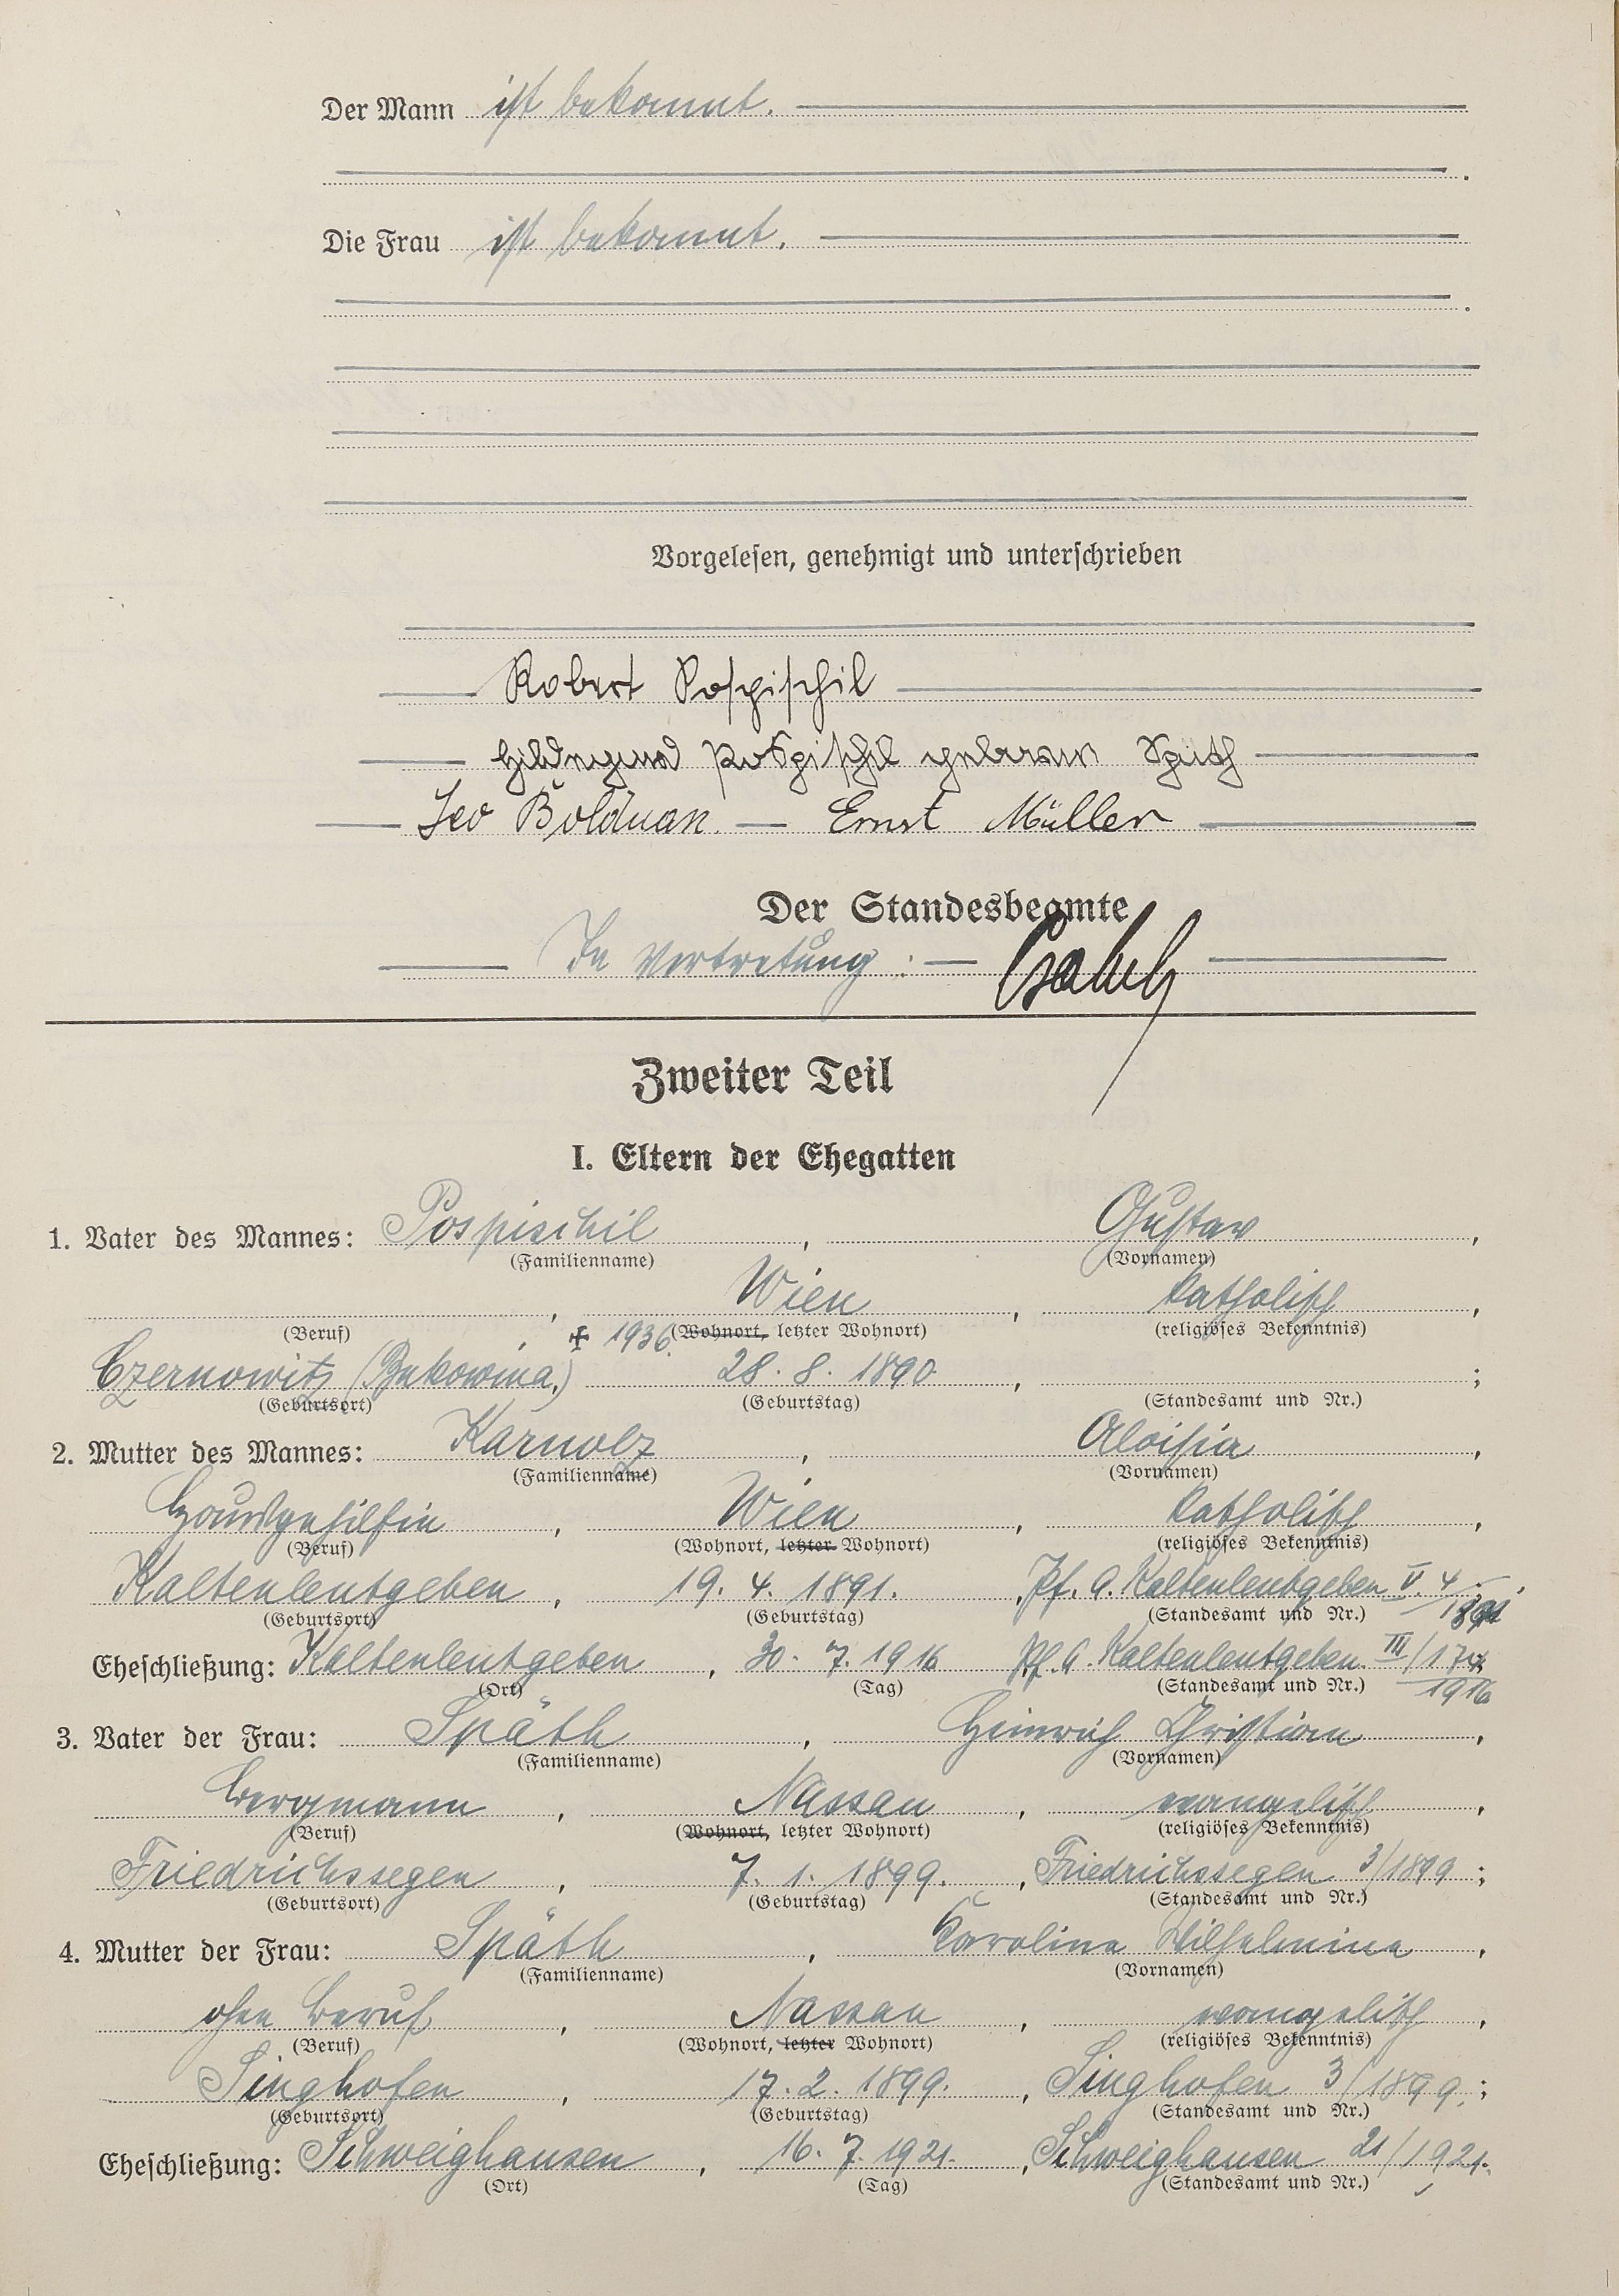 Der Mann ist bekannt.
Die Frau ist bekannt.
Vorgelesen, genehmigt und unterschrieben
Robert Pospischil
Hildegard Pospischil geborene Späth
Leo Bolduan. — Ernst Müller
Der Standesbeamte
In Vertretung: —
Zweiter Teil
I. Eltern der Ehegatten
1. Vater des Mannes: Pospischil, Gustav,
(Familienname) (Vornamen)
, Wien, katholisch,
(Beruf) ✠ 1936. (Wohnort, letzter Wohnort) (religiöses Bekenntnis)
Czernowitz (Bukowina.) 28. 8. 1890, ;
(Geburtsort) (Geburtstag) (Standesamt und Nr.)
2. Mutter des Mannes: Karnolz, Aloisia,
(Familienname) (Vornamen)
Hausgehilfin, Wien, katholisch,
(Beruf) (Wohnort, letzter Wohnort) (religiöses Bekenntnis)
Kaltenleutgeben, 19. 4. 1891., Pf. A. Kaltenleutgeben V. 4/1891;
(Geburtsort) (Geburtstag) (Standesamt und Nr.)
Eheschließung: Kaltenleutgeben, 30. 7. 1916 Pf. A. Kaltenleutgeben III/174 1916
(Ort) (Tag) (Standesamt und Nr.)
3. Vater der Frau: Späth, Heinrich Christian,
(Familienname) (Vornamen)
Bergmann, Nassau, evangelisch,
(Beruf) (Wohnort, letzter Wohnort) (religiöses Bekenntnis)
Friedrichssegen, 7. 1. 1899., Friedrichssegen 3/1899;
(Geburtsort) (Geburtstag) (Standesamt und Nr.)
4. Mutter der Frau: Späth, Karoline Wilhelmine,
(Familienname) (Vornamen)
ohne Beruf, Nassau, evangelisch,
(Beruf) (Wohnort, letzter Wohnort) (religiöses Bekenntnis)
Singhofen, 17. 2. 1899., Singhofen 3/1899.;
(Geburtsort) (Geburtstag) (Standesamt und Nr.)
Eheschließung: Schweighausen, 16. 7. 1921., Schweighausen 21/1921.
(Ort) (Tag) (Standesamt und Nr.)